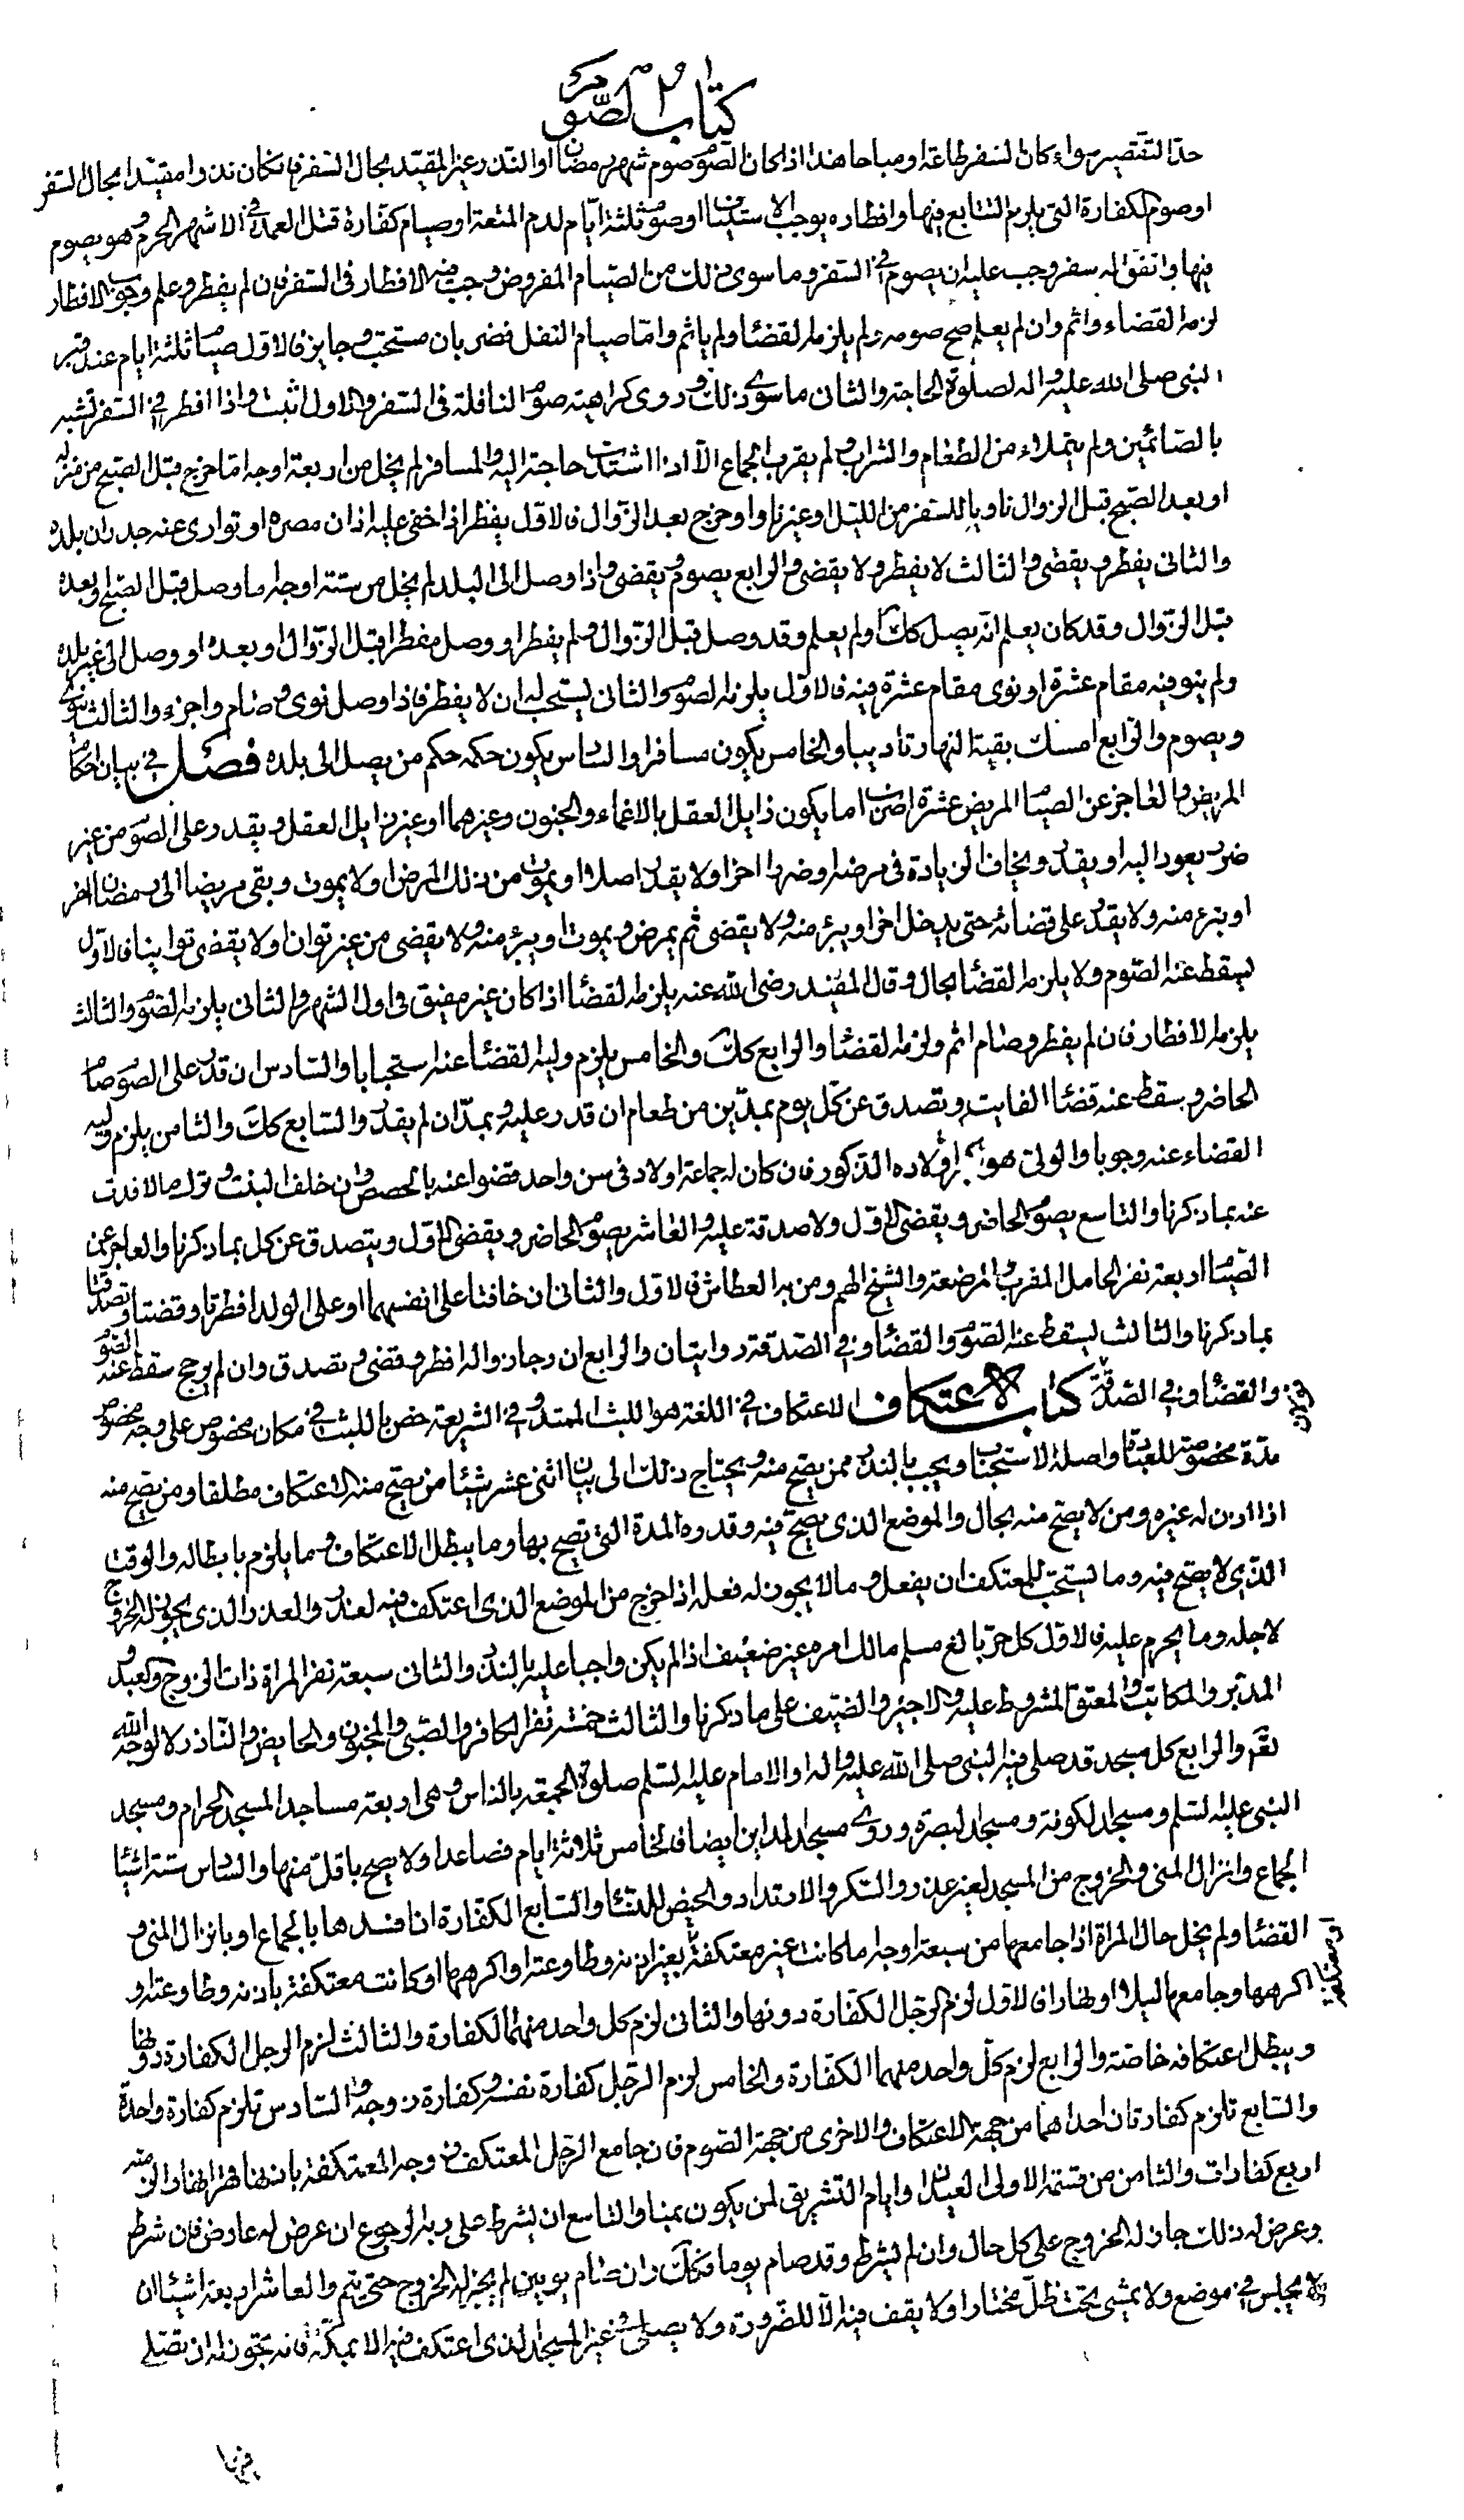 كتاب الصوم
حد التقصير سواء كان السفر طاعة او مباحا هذا اذا كان الصوم صوم شهر رمضان او النذر غير المقيد بحال السفر فان كان نذرا مقيدا بحال السفر
او صوم الكفارة التي يلزم التتابع فيها وافطاره يوجب الاستيناف او صوم ثلثة ايام لدم المتعة او صيام كفارة قتل العمد في الاشهر الحرم وهو يصوم
فيها واتفق له سفر وجب عليه ان يصوم في السفر وما سوى ذلك من الصيام المفروض وجب فيه الافطار في السفر فان لم يفطر وعلم وجوب الافطار
لزمه القضاء واثم وان لم يعلم صح صومه ولم يلزمه القضاء ولم ياثم واما صيام النفل فضربان مستحب وجايز فالاول صيام ثلثة ايام عند قبر
النبي صلى الله عليه واله لصلوة الحاجة والثاني ما سوى ذلك وروى كراهية صوم النافلة في السفر والاول اثبت واذا افطر في السفر تشبه
بالصائمين ولم يتملاء من الطعام والشراب ولم يقرب الجماع الا اذا اشتدت حاجته اليه والمسافر لم يخل من اربعة اوجه اما خرج قبل الصبح من منزله
او بعد الصبح قبل الزوال ناويا للسفر من الليل او غير ناو او خرج بعد الزوال فالاول يفطر اذا خفى عليه اذان مصره او توارى عنه جدران بلده
والثاني يفطر ويقضى والثالث لا يفطر ولا يقضى والرابع يصوم ويقضى واذا وصل الى البلد لم يخل من ستة اوجه اما وصل قبل الصبح او بعده
قبل الزوال وقد كان يعلم انه يصل كك او لم يعلم وقد وصل قبل الزوال ولم يفطر او وصل مفطرا قبل الزوال او بعده او وصل الى غير بلده
ولم ينو فيه مقام عشرة او نوى مقام عشرة فيه فالاول يلزمه الصوم والثاني يستحب له ان لا يفطر فاذا وصل نوى وصام واجزء والثالث ينوى
ويصوم والرابع امسك بقية النهار تاديبا والخامس يكون مسافرا والسادس يكون حكمه حكم من يصل الى بلده فصل في بيان احكام
المريض والعاجز عن الصيام المريض عشرة اضرب اما يكون زايل العقل بالاغماء والجنون وغيرهما او غير زايل العقل ويقدر على الصوم من غير
ضرر يعود اليه او يقدر ويخاف الزيادة في مرضه او ضررا اخر او لا يقدر اصلا او يموت من ذلك المرض او لا يموت وبقى مريضا الى رمضان اخر
او برء منه ولا يقدر على قضائه حتى يدخل اخر او يبرء منه ولا يقضى ثم يمرض ويموت او يبرء منه ولا يقضى من غير توان او لا يقضى توانيا فالاول
يسقط عنه الصوم ولا يلزمه القضاء بحال وقال المفيد رضى الله عنه يلزمه القضاء اذا كان غير مفيق في اول الشهر والثاني يلزمه الصوم والثالث
يلزمه الافطار فان لم يفطر وصام اثم ولزمه القضاء والرابع كك والخامس يلزم وليه القضاء عنه استحبابا والسادس ان قدر على الصوم صام
الحاضر وسقط عنه قضاء الفايت وتصدق عن كل يوم بمدين من طعام ان قدر عليه وبمد ان لم يقدر والسابع كك والثامن يلزم وليه
القضاء عنه وجوبا والولي هو اكبر اولاده الذكور فان كان له جماعة اولاد في سن واحد قضوا عنه بالحصص وان خلف البنت وترك مالا فدت
عنه بما ذكرنا والتاسع يصوم الحاضر ويقضى الاول ولا صدقة عليه والعاشر يصوم الحاضر ويقضى الاول ويتصدق عن كل بما ذكرنا والعاجز عن
الصيام اربعة نفر الحامل المقرب والمرضعة والشيخ الهم ومن به العطاش فالاول والثاني ان خافتا على انفسهما او على الولد افطرتا وقضتا وتصدقتا
بما ذكرنا والثالث يسقط عنه الصوم والقضاء وفي الصدقة روايتان والرابع ان رجا زواله افطر وقضى وتصدق وان لم يرج سقط عنه الصوم
والقضاء وفي الصدقة كتاب الاعتكاف الاعتكاف في اللغة هو اللبث الممتد وفي الشريعة خص باللبث في مكان مخصوص على وجه مخصوص
مدة مخصوصة للعبادة واصله الاستحباب ويجب بالنذر ممن يصح منه ويحتاج ذلك الى بيان اثنى عشر شيئا من يصح منه الاعتكاف مطلقا ومن يصح منه
اذا اذن له غيره ومن لا يصح منه بحال والموضع الذي يصح فيه وقدر المدة التي تصح بها وما يبطل الاعتكاف وما يلزم بابطاله والوقت
الذي لا يصح فيه وما يستحب للمعتكف ان يفعل وما لا يجوز له فعله اذا خرج من الموضع الذي اعتكف فيه لعذر والعذر الذي يجوز له الخروج
لاجله وما يحرم عليه فالاول كل حر بالغ مسلم مالك امره غير ضعيف اذا لم يكن واجبا عليه بالنذر والثاني سبعة نفر المراة ذات الزوج والعبد و
المدبر والمكاتب والمعتق المشروط عليه والاجير والضيف على ما ذكرنا والثالث خمسة نفر الكافر والصبي والمجنون والحايض والناذر لا لوجه الله
تعم والرابع كل مسجد قد صلى فيه النبي صلى الله عليه واله او الامام عليه السلم صلوة الجمعة بالناس وهي اربعة مساجد المسجد الحرام ومسجد
النبي عليه السلم ومسجد الكوفة ومسجد البصرة وروى مسجد المداين ايضا والخامس ثلاثة ايام فصاعدا ولا يصح باقل منها والسادس ستة اشياء
الجماع وانزال المنى والخروج من المسجد لغير عذر والسكر والارتداد والحيض للنساء والسابع الكفارة ان افسدها بالجماع او بانزال المنى و
القضاء ولم يخل حال المراة اذا جامعها من سبعة اوجه اما كانت غير معتكفة بغير اذنه وطاوعته او اكرهها او كانت معتكفة باذنه وطاوعته او
اكرهها وجامعها ليلا او نهارا فالاول لزم الرجل الكفارة دونها والثاني لزم كل واحد منهما الكفارة والثالث لزم الرجل الكفارة دونها
ويبطل اعتكافه خاصة والرابع لزم كل واحد منهما الكفارة والخامس لزم الرجل كفارة نفسه وكفارة زوجه والسادس تلزم كفارة واحدة
والسابع تلزم كفارتان احداهما من جهة الاعتكاف والاخرى من جهة الصوم فان جامع الرجل المعتكف زوجه المعتكفة باذنها قهرا نهارا لزمته
اربع كفارات والثامن من قسمة الاولى العيدان وايام التشريق لمن يكون بمنا والتاسع ان يشرط على ربه الرجوع ان عرض له عارض فان شرط
وعرض له ذلك جاز له الخروج على كل حال وان لم يشرط وقد صام يوما فكك وان صام يومين لم يجز له الخروج حتى يتم والعاشر اربعة اشياء ان
لا يجلس في موضع ولا يمشى تحت ظل مختارا ولا يقف فيه الا للضرورة ولا يصلى في غير المسجد الذي اعتكف فيه الا بمكة فانه يجوز له ان يصلى